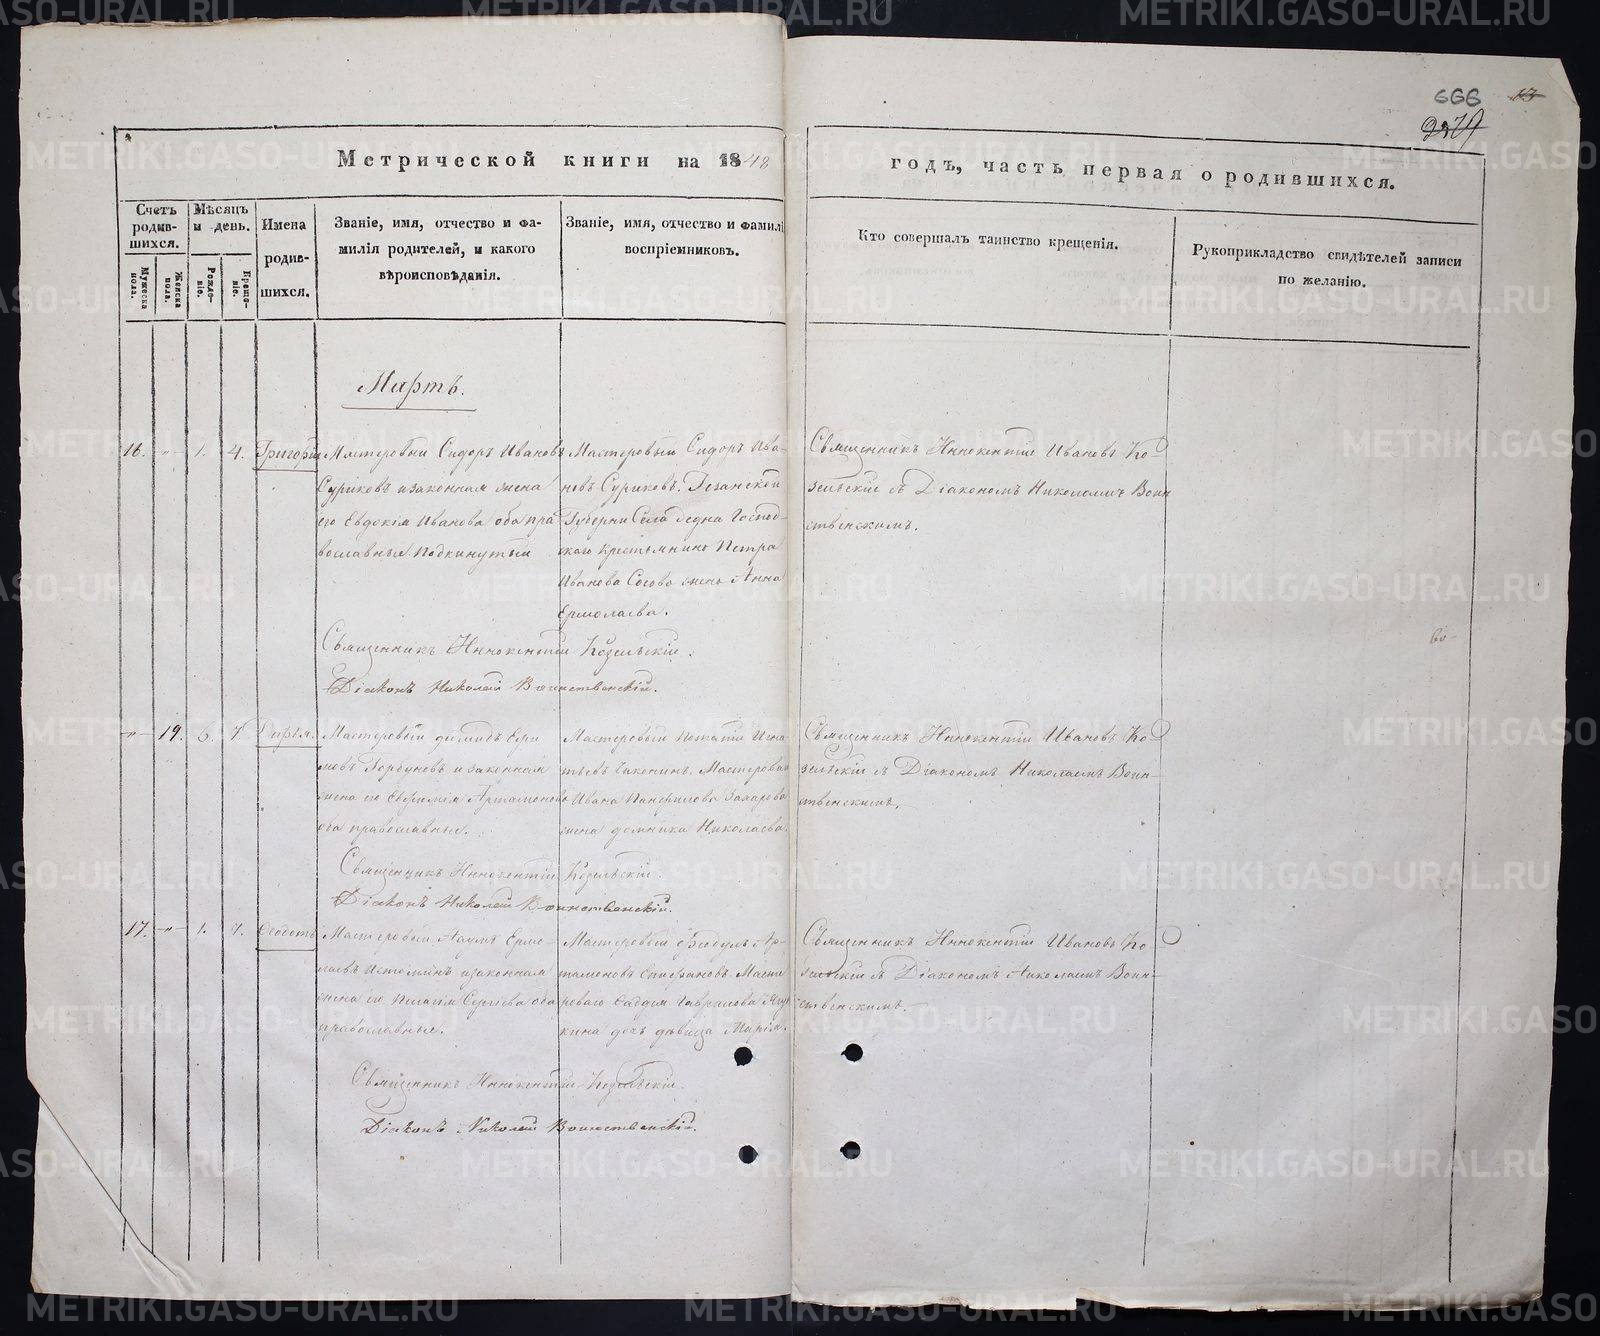 666 13
Метрической книги на 1848
годъ, часть первая о родившихся.
Счетъ родив-шихся.
Мужеска пола.
Женска пола.
Мѣсяцъ и день.
Рожде-ніе.
Креще-ніе.
Имена родив-шихся.
Званіе, имя, отчество и фа-
милія родителей, и какого
вѣроисповѣданія.
Званіе, имя, отчество и фамилі
воспріемниковъ.
Кто совершалъ таинство крещенія.
Рукоприкладство свидѣтелей записи
по желанію.
Мартъ.
16. -"- 1. 4. Григорій
Мастеровый Сидоръ Ивановъ
Суриковъ и законная жена
его Евдокія Иванова оба пра
вославные. Подкинутый
Мастеровый Сидоръ Ива-
новъ Суриковъ.
Губерни Села Господ-
ского крестьянина Петра
Иванова жена Анна
Ермолаева.
Священникъ Иннокентій Ивановъ Ко-
зельскій съ Діакономъ Николаемъ Воин
ственскимъ.
Священникъ Иннокентій Козельскій.
Діаконъ Николай Воинственскій.
-"- 19. 6. 7.
Мастеровый Ефи
мовъ Горбуновъ и законная
жена его Евфимія Артамонова
оба православные.
Мастеровый Игна-
тьевъ Мастероваго
Ивана Панфилова Захарова
жена Домника Николаева.
Священникъ Иннокентій Ивановъ Ко-
зельскій съ Діакономъ Николаемъ Воин-
ственскимъ.
Священникъ Иннокентій Козельскій.
Діаконъ Николай Воинственскій.
17. -"- 1. 7. Феодотъ
Мастеровый Наумъ Ермо-
лаевъ Истоминъ и законная
жена его Пелагія Сергіева оба
православные.
Мастеровый Феодулъ Ар-
тамоновъ Епифановъ. Масте
роваго Гаврилова
кина дочь дѣвица Марія.
Священникъ Иннокентій Ивановъ Ко-
зельскій съ Діакономъ Николаемъ Воин-
ственскимъ.
Священникъ Иннокентій Козельскій.
Діаконъ Николай Воинственскій.
METRIKI.GASO-URAL.RU